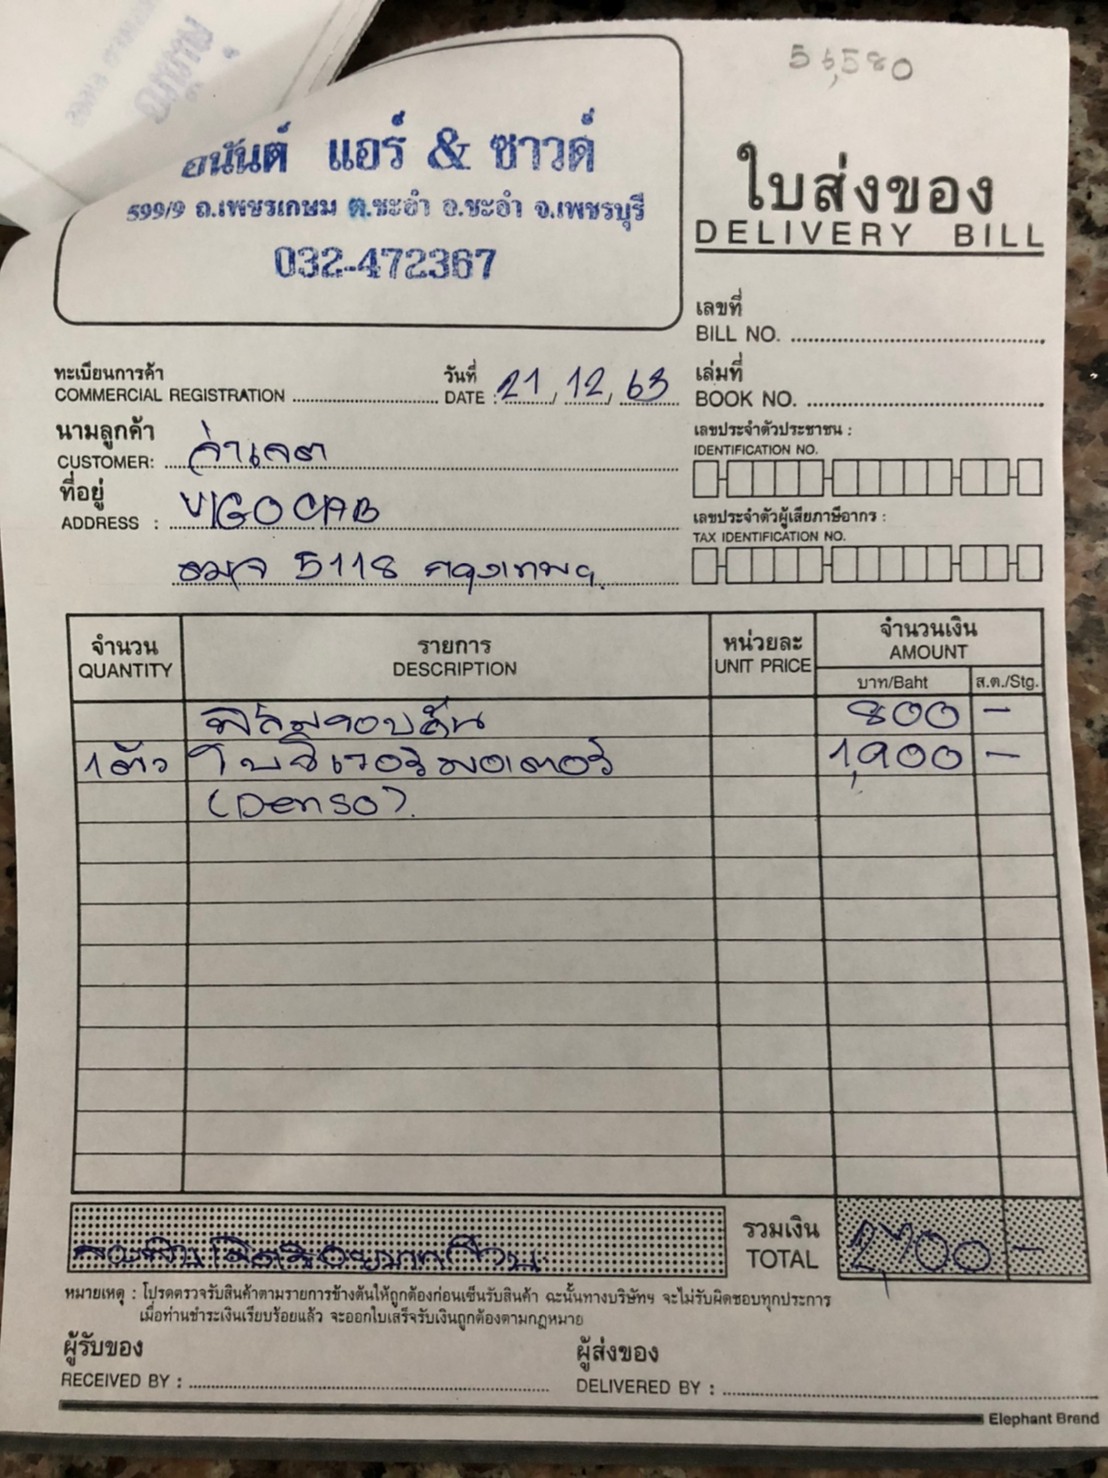 56,580
อนันต์ แอร์ & ซาวด์
599/9 ถ.เพชรเกษม ต.ชะอำ อ.ชะอำ จ.เพชรบุรี
032-472367
ใบส่งของ
DELIVERY BILL
เลขที่
BILL NO.
ทะเบียนการค้า
COMMERCIAL REGISTRATION
วันที่
DATE : 21, 12, 63
เล่มที่
BOOK NO.
นามลูกค้า
CUSTOMER: จ่าเจต
ที่อยู่
ADDRESS : VIGO CAB
5118 กรุงเทพฯ
เลขประจำตัวประชาชน :
IDENTIFICATION NO.
เลขประจำตัวผู้เสียภาษีอากร :
TAX IDENTIFICATION NO.
จำนวน รายการ หน่วยละ จำนวนเงิน
QUANTITY DESCRIPTION UNIT PRICE AMOUNT
บาท/Baht ส.ต./Stg.
ฟิล์มรอบคัน 800 -
1 ตัว โบว์เวอร์มอเตอร์ 1,900 -
(Denso).
รวมเงิน
TOTAL 2,700 -
หมายเหตุ : โปรดตรวจรับสินค้าตามรายการข้างต้นให้ถูกต้องก่อนเซ็นรับสินค้า ฉะนั้นทางบริษัทฯ จะไม่รับผิดชอบทุกประการ
เมื่อท่านชำระเงินเรียบร้อยแล้ว จะออกใบเสร็จรับเงินถูกต้องตามกฎหมาย
ผู้รับของ
RECEIVED BY :
ผู้ส่งของ
DELIVERED BY :
Elephant Brand